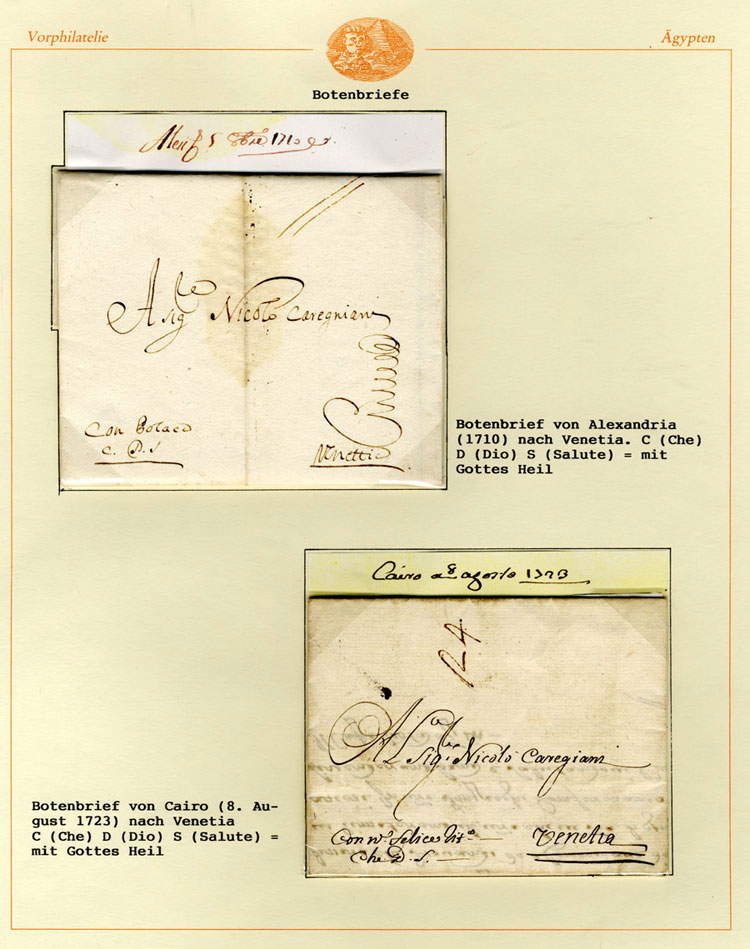 Vorphilatelie
Ägypten
Botenbriefe
5 8bre 1710
Al Sig Nicolò Caregniani
Con
C. D. S
Venettia
Botenbrief von Alexandria
(1710) nach Venetia. C (Che)
D (Dio) S (Salute) = mit
Gottes Heil
Cairo a 8 agosto 1723
24
Al Sigr Nicolò Caregiani
Che D. S.
Venetia
Botenbrief von Cairo (8. Au-
gust 1723) nach Venetia
C (Che) D (Dio) S (Salute) =
mit Gottes Heil